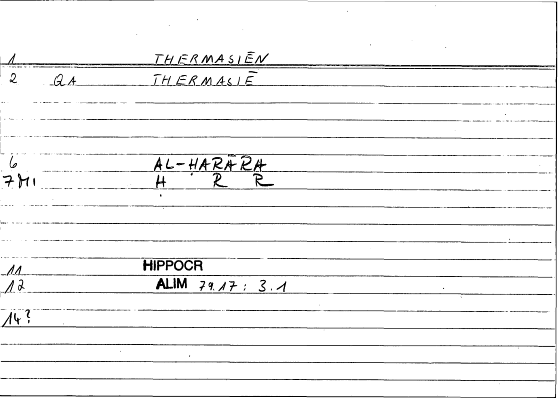 1 THERMASIĒN
2 QA THERMASIĒ
6 AL-ḤARĀRA
7 M1 Ḥ R R
11 HIPPOCR
12 ALIM 79.17: 3.1
14?